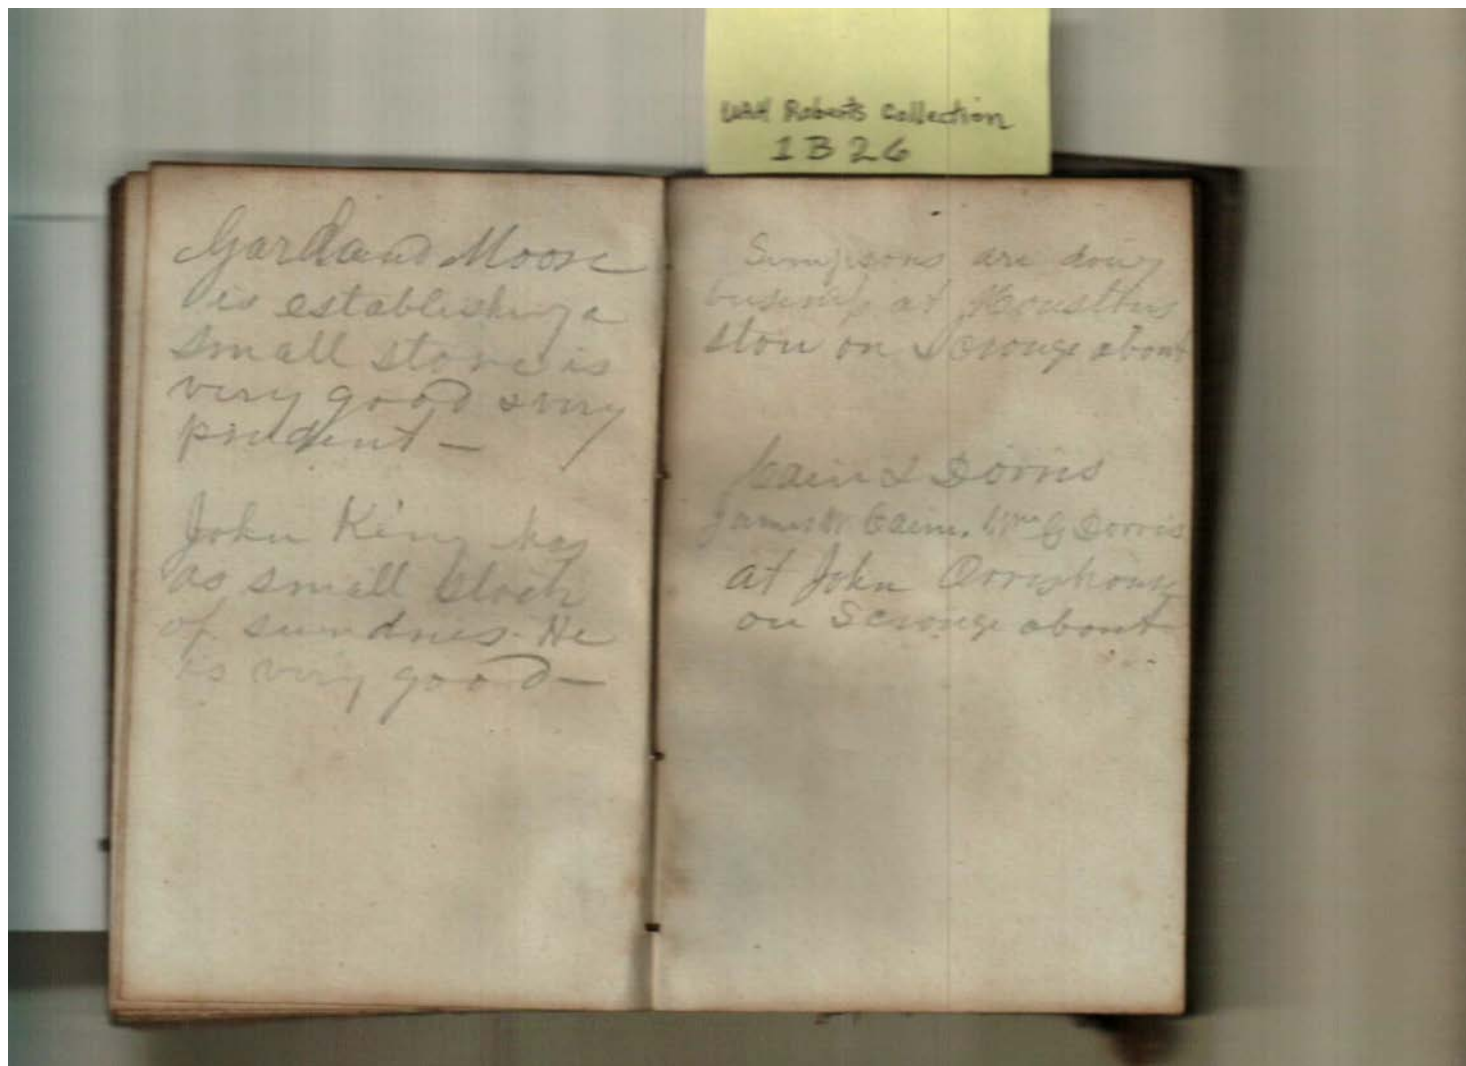 UAH Roberts Collection
1B26
Garland Moore
is establishing a
small store is
very good & very
prudent —
John King has
as small stock
of sundries. He
is very good —
Simpsons are doing
business at
store on Scrouge about
Cain & Dorris
James W Cain. Wm G Dorris
at John
on Scrouge about